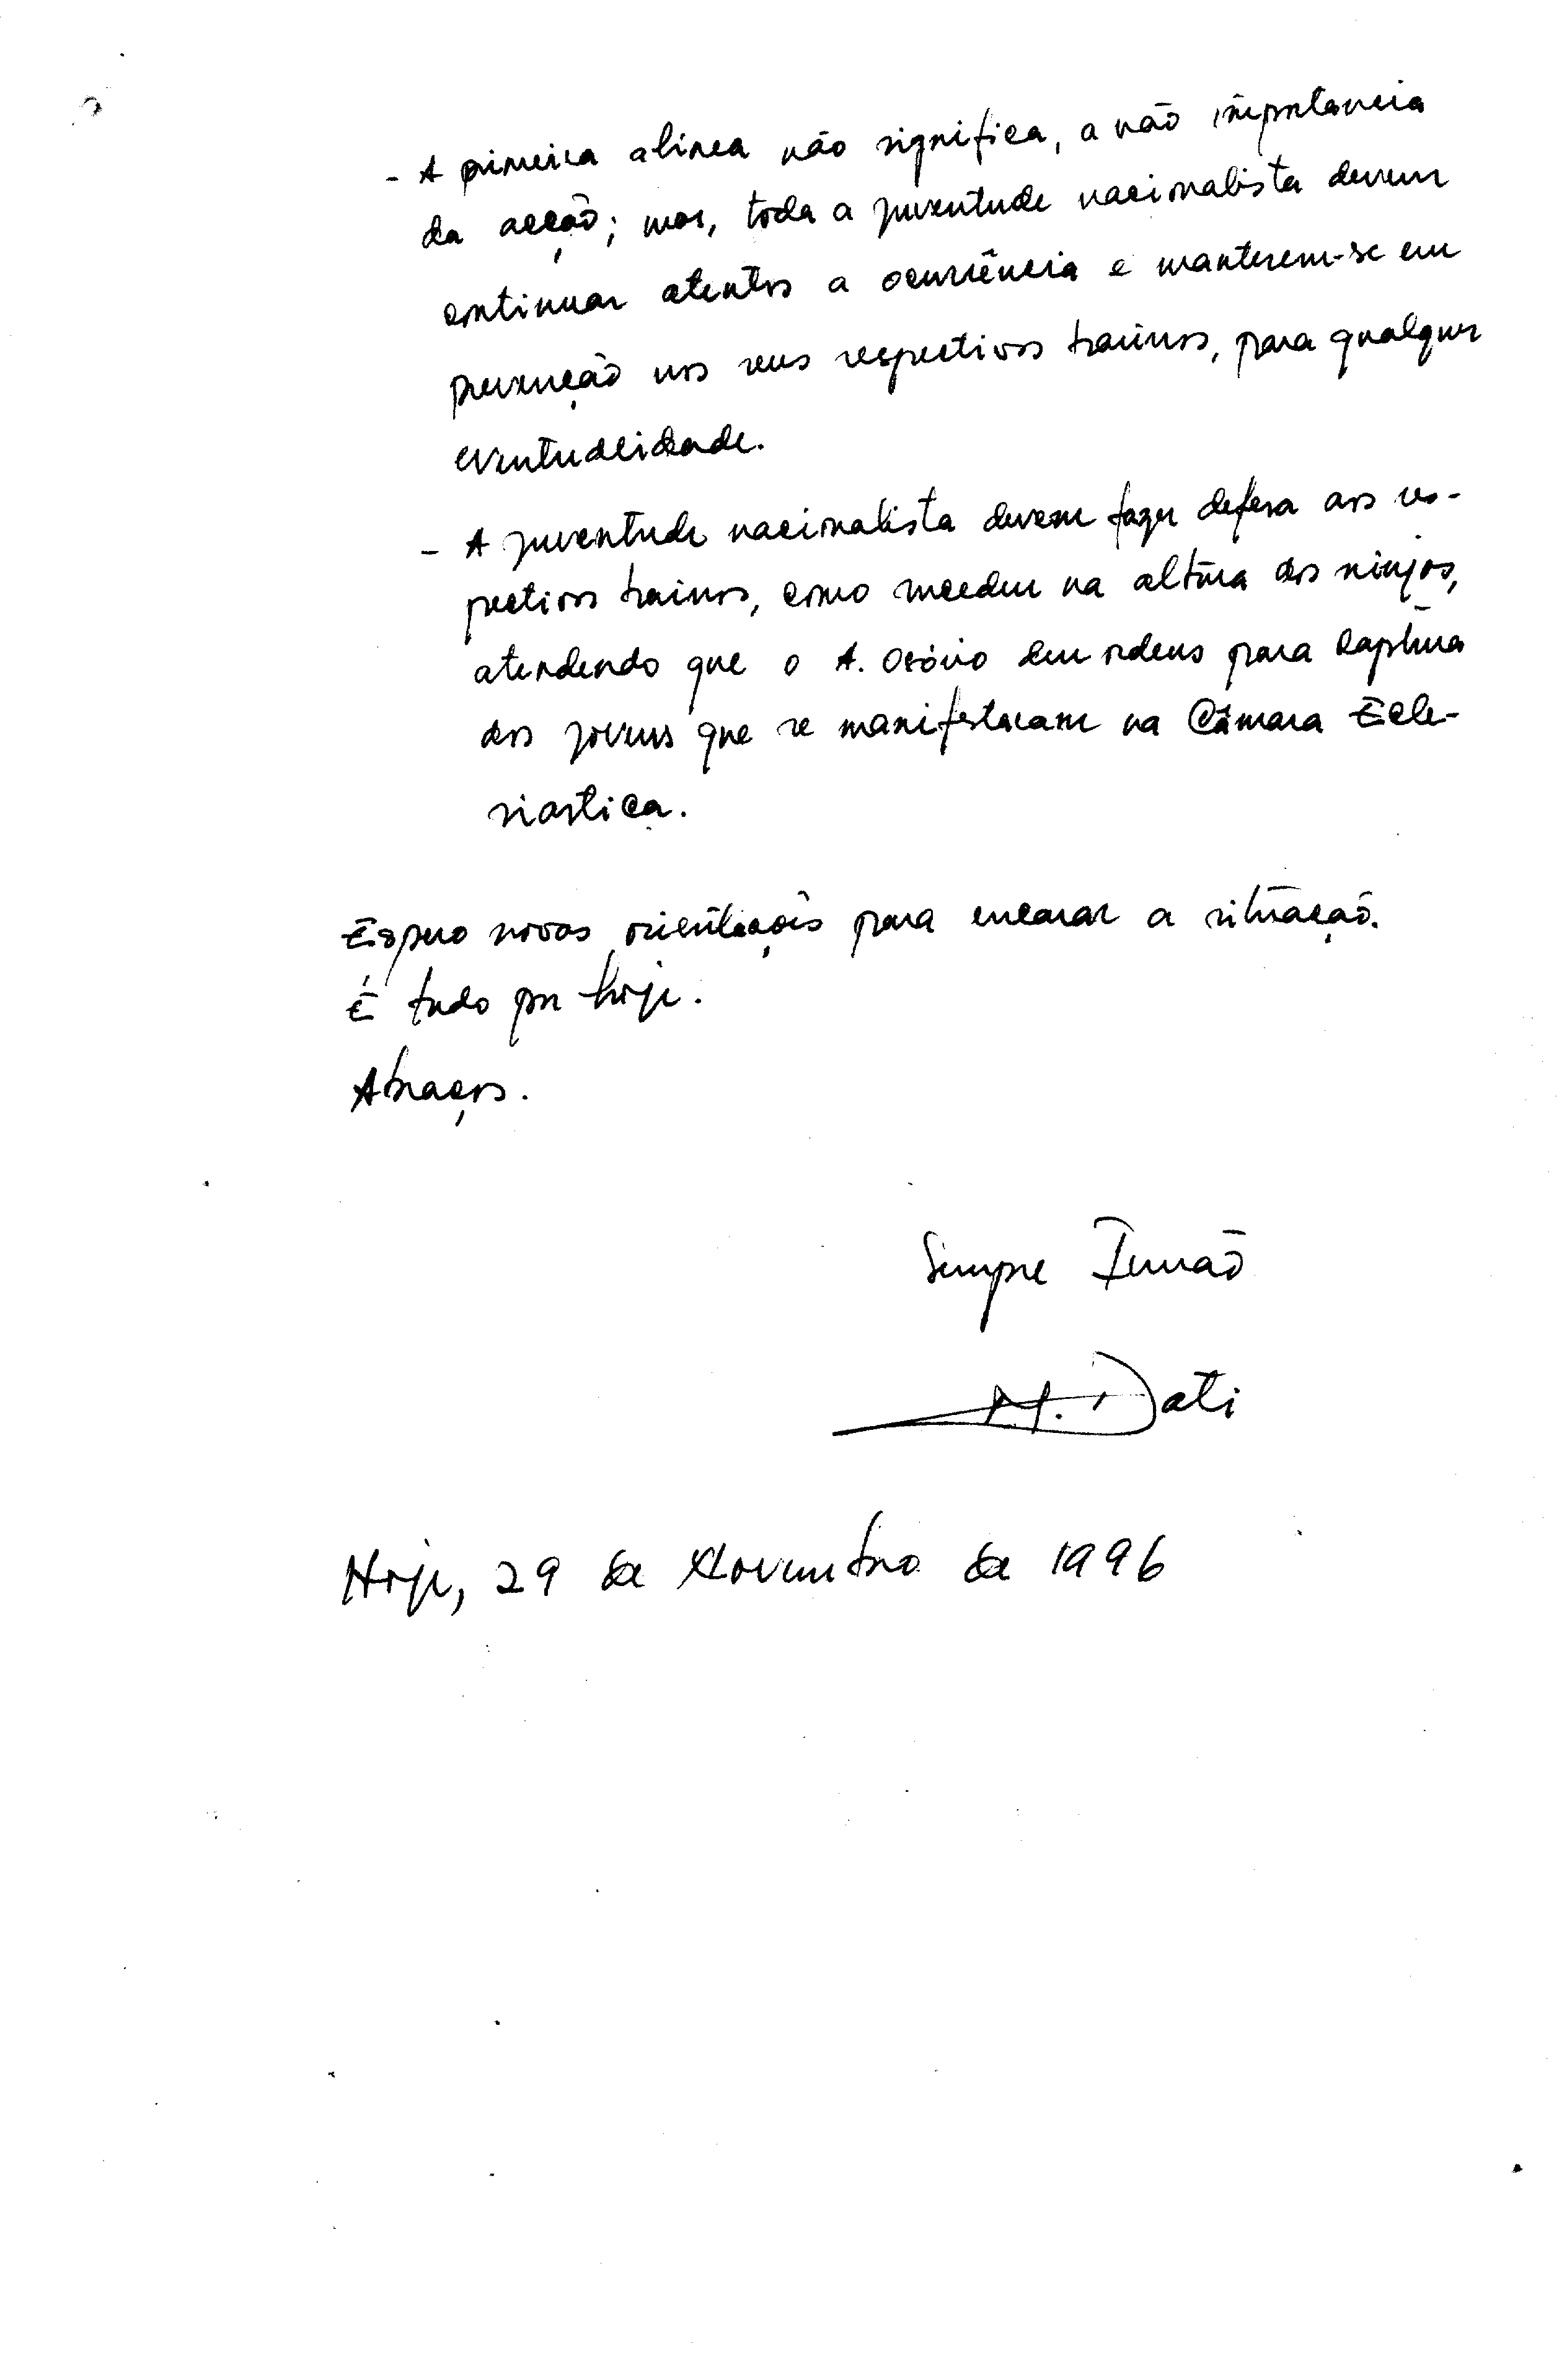 - A primeira alinea não significa, a não importancia
da acção; mas, toda a juventude nacionalista devem
continuar atentos a ocurrência e manterem-se em
prevenção nos seus respectivos bairros, para qualquer
eventualidade.
- A juventude nacionalista devem fazer defesa aos res-
pectivos bairros, como sucedeu na altura dos ninjas,
atendendo que o A. Osório deu ordens para captura
dos jovens que se manifestaram na Câmara Ecle-
siastica.
Espero novas orientações para encarar a situação.
É tudo por hoje.
Abraços.
Sempre Irmão
M. Dati
Hoje, 29 de Novembro de 1996